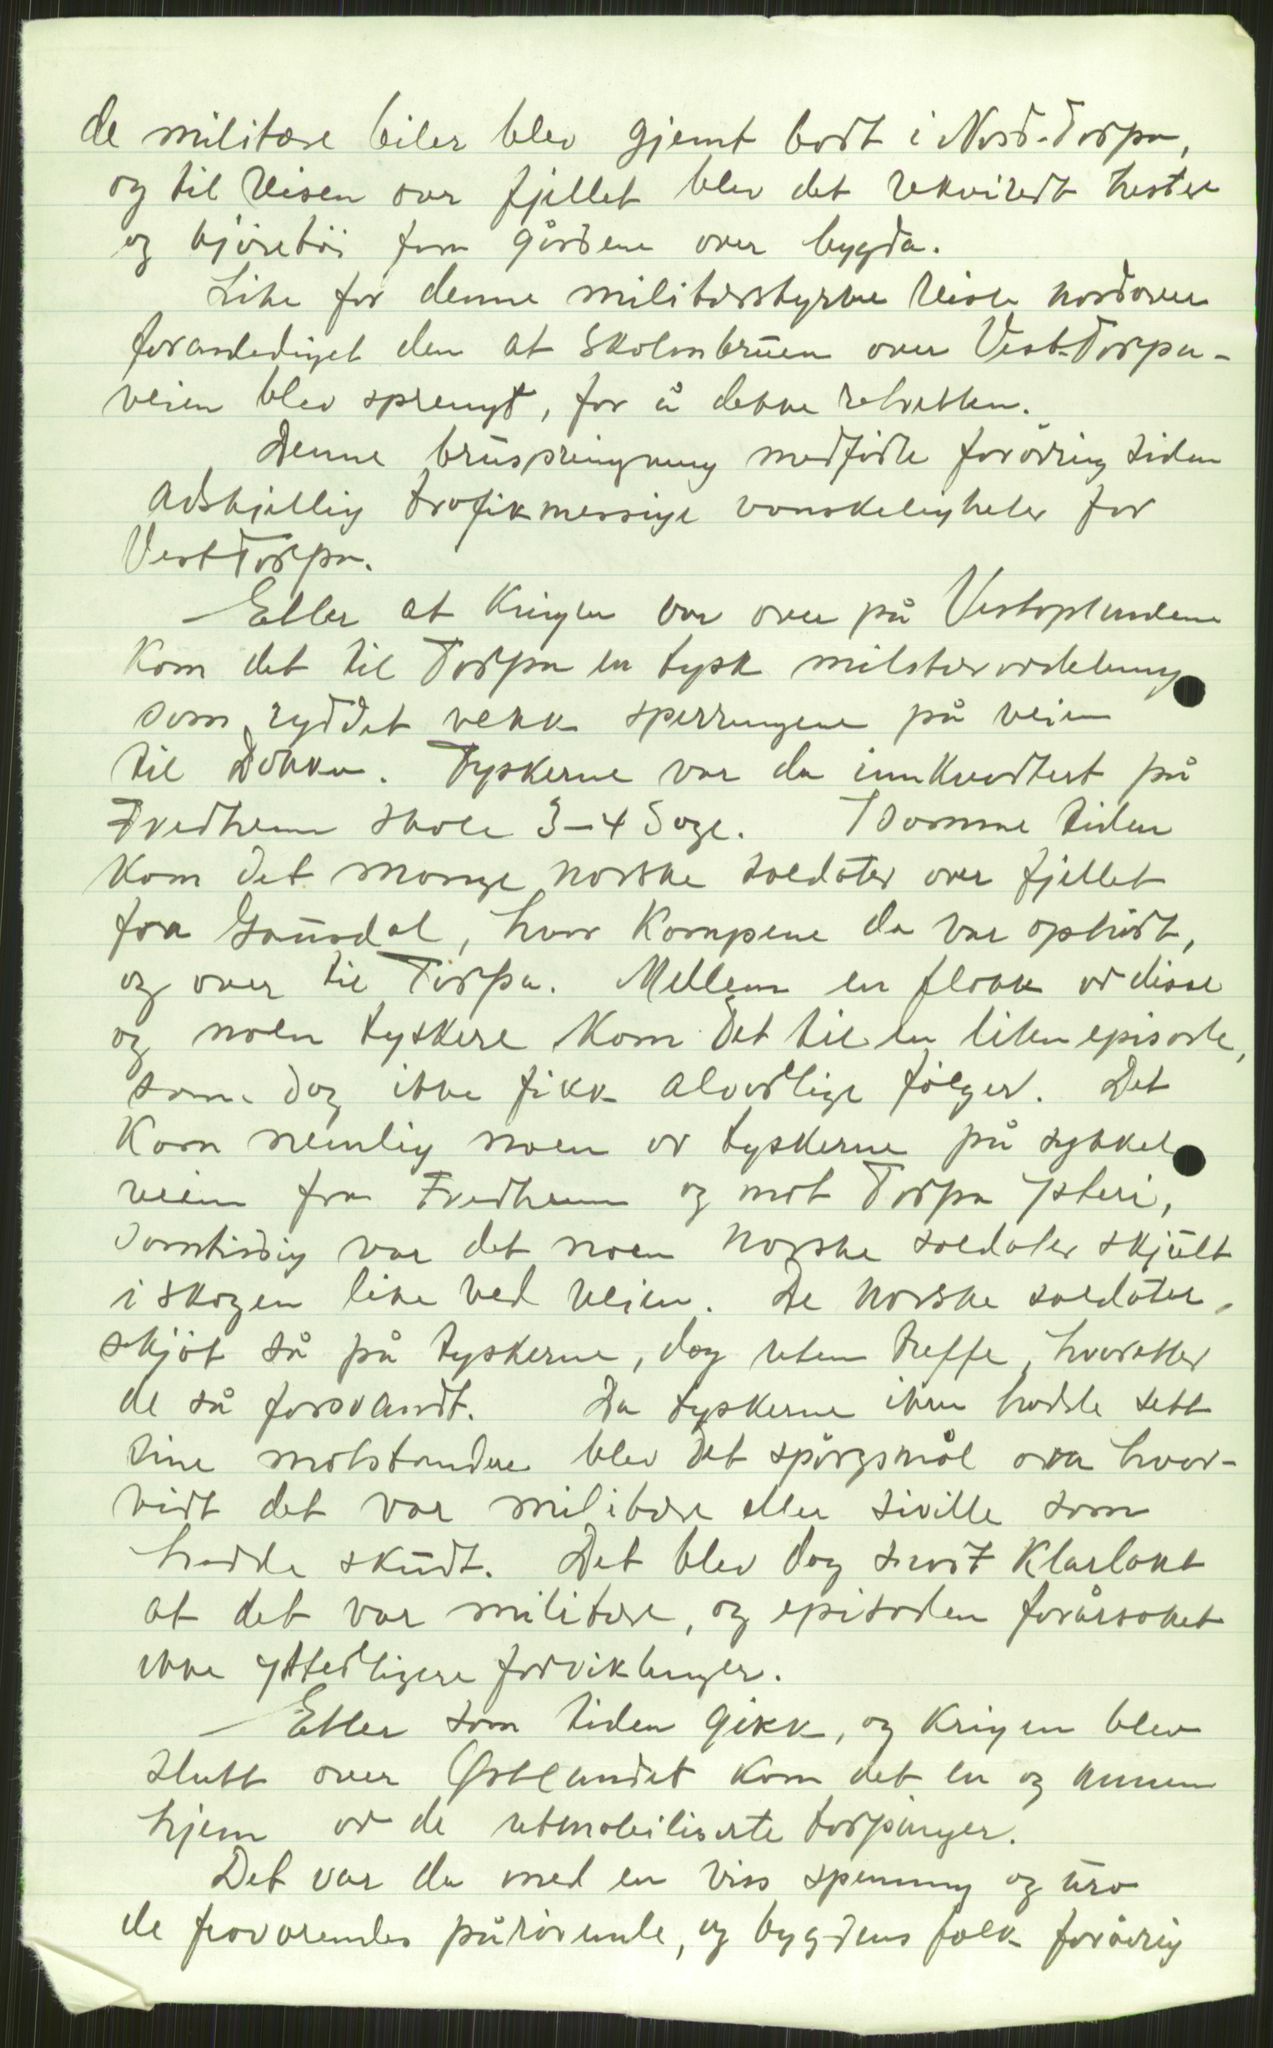 de militære biler blev gjemt bort i Nord-Torpa,
og til reisen over fjellet blev det rekvirert hester
og kjøretøi fra gårdene over bygda.
Like før denne militærstyrke reiste nordover
foranlediget den at Skolmbrúen over Vest-Torpa-
veien blev sprengt, for å dekke retretten.
Denne brúsprengning medførte forøvrig siden
adskjellig trafikmessige vanskeligheter for
Vest Torpa.
Etter at krigen var over på Vestoplandene
kom det til Torpa en tysk militæravdeling
som ryddet vekk sperringene på veien
til Dokka. Tyskerne var da innkvartert på
Fredheim skole 3-4 dage. I samme tiden
kom det mange norske soldater over fjellet
fra Gausdal, hvor kampene da var ophørt,
og over til Torpa. Mellem en flokk av disse
og noen tyskere kom det til en liten episode,
som dog ikke fikk alvorlige følger. Det
kom nemlig noen av tyskerne på sykkel
veien fra Fredheim og mot Torpa Ysteri,
samtidig var det noen norske soldater skjúlt
i skogen like ved veien. De norske soldater
skjøt så på tyskerne, dog uten treffe, hvoretter
de så forsvandt. Da tyskerne ikke hadde sett
sine motstandere blev det spørgsmål om hvor-
vidt det var militære eller siville som
hadde skúdt. Det blev dog snart klarlakt
at det var militære, og episoden forårsaket
ikke ytterligere forviklinger.
Etter som tiden gikk, og krigen blev
slutt over Østlandet kom det en og annen
hjem av de utmobiliserte torpinger.
Det var da med en viss spenning og úro
de fraværendes pårørende, og bygdens folk forøvrig